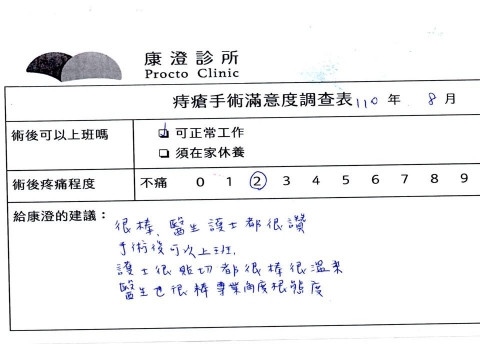 康澄診所
Procto Clinic
痔瘡手術滿意度調查表 110 年 8 月
術後可以上班嗎
可正常工作
須在家休養
術後疼痛程度 不痛 0 1 2 3 4 5 6 7 8 9
給康澄的建議：
很棒、醫生護士都很讚
手術後可以上班.
護士很貼切都很棒很溫柔
醫生也很棒專業角度很態度